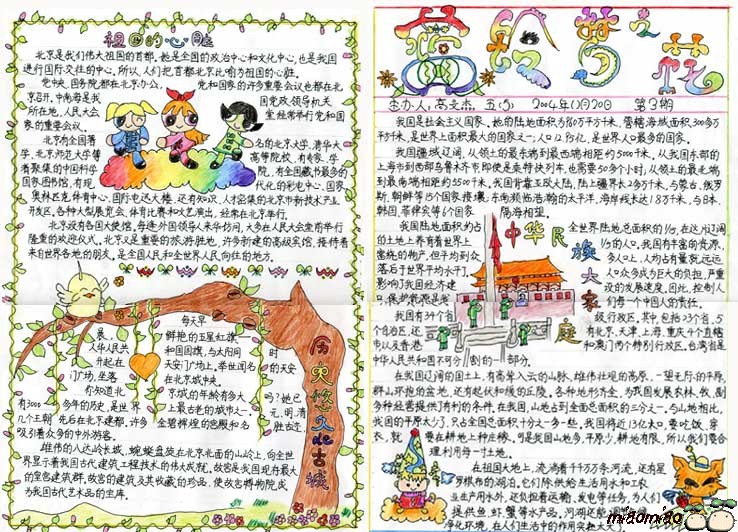 祖国的心脏
北京是我们伟大祖国的首都,她是全国的政治中心和文化中心,也是我国
进行国际交往的中心。所以,人们把首都北京比喻为祖国的心脏。
党中央、国务院都在北京办公,党和国家的许多重要会议也都在北
京召开。中南海是我国党政领导机关
所在地,人民大会堂经常举行党和国
家的重要会议。
北京有全国著名的北京大学、清华大
学、北京师范大学等高等院校,有专家、学
者聚集的中国科学院,有全国藏书最多的
国家图书馆,有现代化的彩电中心、国家
奥林匹克体育中心、国际电
开发区,各种大型展览会、体育比赛和文艺演出,经常在北京举行。
北京设有各国大使馆,每逢外国领导人来华访问,大多在人民大会堂前举行
隆重的欢迎仪式。北京又是重要的旅游胜地,许多新建的高级宾馆,接待着
来自世界各地的朋友,是全国人民和全世界人民向往的地方。
历史悠久de古城
每天早
晨,鲜艳的五星红旗
人华人民共和国国旗,与太阳同时
升起在天安门广场上,举世闻名的天安
门广场,坐落在北京城中央。
你知道北京城的年龄有多大吗?她已
有3000多年的历史,是世界上最古老的城市之一。元、明、清
几个王朝先后在北京建都,许多金碧辉煌的宫殿和名胜古迹,
吸引着众多的中外游客。
雄伟的八达岭长城,蜿蜒盘旋在北京北面的山岭上,向全世
界显示着我国古代建筑工程技术的伟大成就。故宫是我国现存最大
的皇宫建筑群,故宫的建筑及其收藏的珍品,使故宫博物院成
为我国古代艺术品的宝库。
主办人:高文杰 五(5) 2004年11月20日 第3期
我国是社会主义国家,她的陆地面积为960万平方千米,管辖海域面积300多万
平方千米,是世界上面积最大的国家之一;人口12.95亿,是世界人口最多的国家。
我国疆域辽阔,从领土的最东端到最西端相距约5000千米。从我国东部的
上海市到西部乌鲁木齐市即使是乘特快列车,也需要50多个小时;从领土的最北端
到最南端相距约5500千米。我国背靠亚欧大陆,陆上疆界长2多万千米,与蒙古、俄罗
斯、朝鲜等15个国家接壤;东南濒临浩瀚的太平洋,海岸线长达1.8万千米,与日本、
韩国、菲律宾等6个国家隔海相望。
中华民族大家庭
我国陆地面积约占全世界陆地面积的1/15,在这片辽阔
的土地上养育着世界上1/5的人口。我国有丰富的资源,
但平均到众多人口上,人均占有量就远远
落后于世界平均水平,人口众多成为巨大的负担,严重
影响了我国经济建设的发展速度。因此,控制人
每一个中国人的责任。
我国有34个省级行政区,其中,包括23个省、5
个自治区,还有北京、天津、上海、重庆4个直辖
市以及香港和澳门两个特别行政区。台湾省是
中华人民共和国不可分割的一部分。
在我国辽阔的国土上,有高耸入云的山脉、雄伟壮观的高原、一望无际的平原、
群山环抱的盆地,还有起伏和缓的丘陵。各种地形齐全,为我国发展农、林、牧、副
多种经营提供了有利的条件。在我国,山地占到全国总面积的三分之一。与山地相比,
我国的平原太少了,只占全国总面积十分之一多一些。我国将近13亿人口,要吃饭、穿
衣,就要在耕地上种庄稼。可是我国山地多,平原少,耕地有限,所以我们要合
理利用每一寸土地。
在祖国大地上,流淌着千千万万条河流,还有星
罗棋布的湖泊。它们除供给生活用水和工农
业生产用水外,还负担着运输、发电等任务,为人们
提供鱼、虾、蟹等水产品。
净化环境,在人们生活中的作用
miaomiao